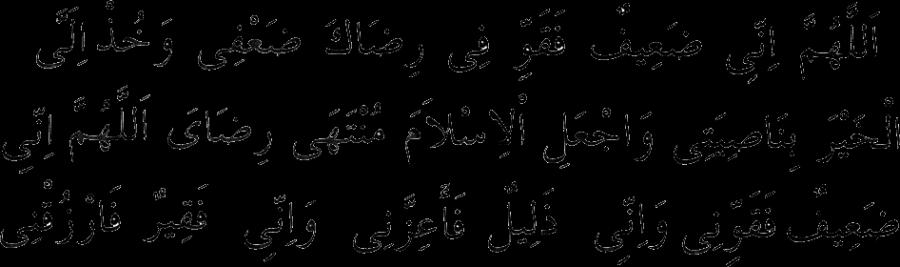 اَللّٰهُمَّ اِنِّي ضَعِيفٌ فَقَوِّ فِى رِضَاكَ ضَعْفِى وَ خُذْ اِلَىَّ
الْخَيْرَ بِنَاصِيَتِى وَاجْعَلِ الْاِسْلاَمَ مُنْتَهَى رِضَاىَ اَللّٰهُمَّ اِنِّي
ضَعِيفٌ فَقَوِّنِى وَاِنِّى ذَلِيلٌ فَأَعِزَّنِى وَاِنِّي فَقِيرٌ فَارْزُقْنِى